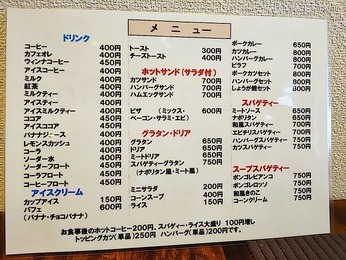 メニュー
ドリンク
コーヒー 400円
カフェオレ 400円
ウィンナコーヒー 450円
アイスコーヒー 400円
ミルク 400円
紅茶 400円
ミルクティー 400円
アイスティー 400円
アイスミルクティー 400円
ココア 450円
アイスココア 450円
バナナジュース 400円
レモンスカッシュ 400円
コーラ 400円
ソーダー水 400円
ソーダーフロート 450円
コーラフロート 450円
コーヒーフロート 450円
アイスクリーム
カップアイス 150円
パフェ 600円
(バナナ・チョコバナナ)
トースト 300円
チーズトースト 400円
ホットサンド(サラダ付)
カツサンド 700円
ハンバーグサンド 700円
ハムエッグサンド 700円
ピザ (ミックス・ 600円
ベーコン・サラミ・エビ)
グラタン・ドリア
グラタン 650円
ドリア 650円
ミートドリア 650円
スパゲティーグラタン 750円
(ナポリタン風・ミート風)
ミニサラダ 200円
コーンスープ 400円
ライス 150円
ポークカレー 650円
カツカレー 800円
ハンバーグカレー 800円
ピラフ 700円
ポークカツセット 800円
ハンバーグセット 800円
しょうが焼セット 800円
スパゲティー
ミートソース 650円
ナポリタン 650円
和風スパゲティー 700円
エビチリスパゲティー 700円
ハンバーグスパゲティー 750円
カツスパゲティー 750円
スープスパゲティー
ボンゴレビアンコ 750円
ボンゴレロッソ 750円
和風きのこ 750円
コーンクリーム 750円
お食事後のホットコーヒー200円、スパゲティー・ライス大盛り 100円増し
トッピングカツ(単品)250円 ハンバーグ(単品)200円です。